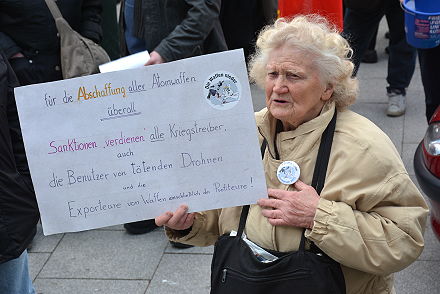 für die Abschaffung aller Atomwaffen
überall
Sanktionen „verdienen“ alle Kriegstreiber,
auch
die Benutzer von tötenden Drohnen
und die
Exporteure von Waffen einschließlich der Profiteure!
Die Waffen nieder